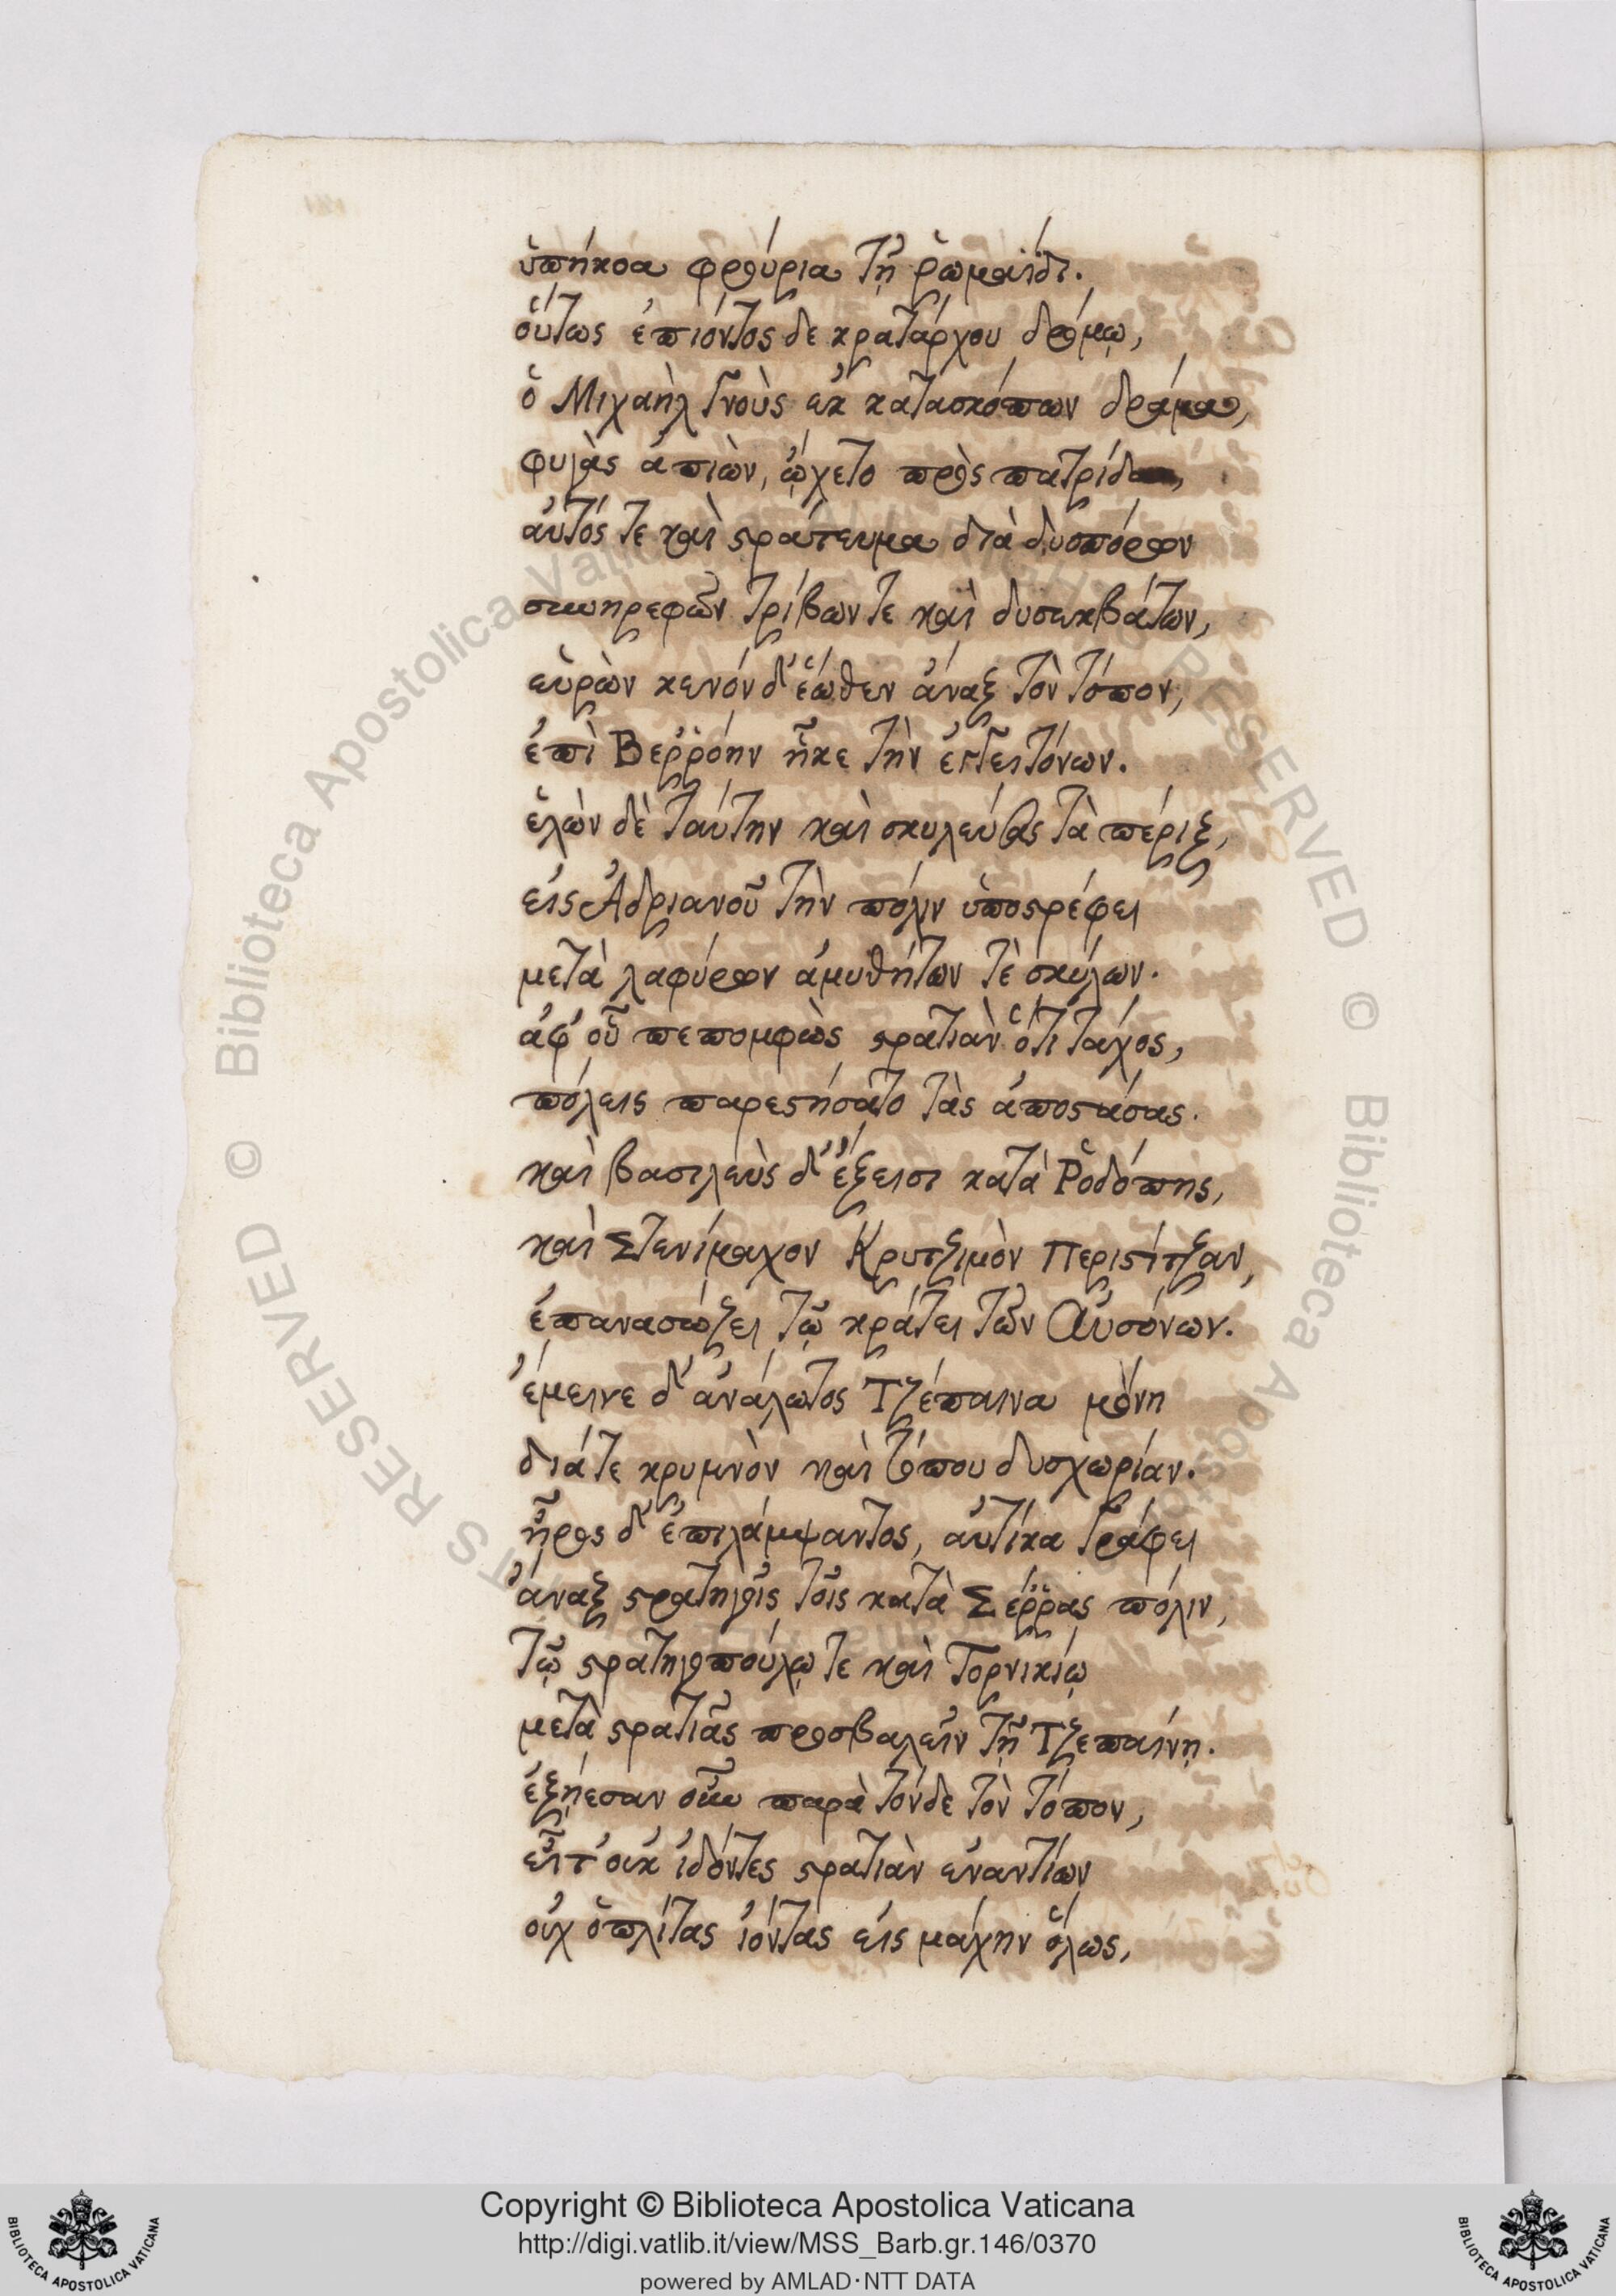 ὑπήκοα φρούρια τῇ ῥωμαΐδι.
οὕτως ἐπιόντος δὲ κρατάρχου δρόμῳ,
ὁ Μιχαὴλ γνοὺς ἐκ κατασκόπων δράμα,
φυγὰς ἀπιὼν, ᾤχετο πρὸς πατρίδα,
αὐτός τε καὶ στράτευμα διὰ δυσπόρων
συνηρεφῶν τρίβων τε καὶ δυσεκβάτων,
εὑρὼν κενόν δ' ἕωθεν ἄναξ τὸν τόπον,
ἐπὶ Βεῤῥόην ἧκε τὴν ἐκ γειτόνων.
ἑλὼν δὲ ταύτην καὶ σκυλεύσας τὰ πέριξ,
εἰς Ἀδριανοῦ τὴν πόλιν ὑποστρέφει
μετὰ λαφύρων ἀμυθήτων τὲ σκύλων.
ἀφ' οὗ πεπομφὼς στρατιὰν ὅτι τάχος,
πόλεις παρεστήσατο τὰς ἀποστάσας.
καὶ βασιλεὺς δ' ἔξεισι κατὰ Ῥοδόπης,
καὶ Στενίμαχον Κρυτζιμὸν Περιστίτζαν,
ἐπανασώζει τῷ κράτει τῶν Αὐσόνων.
ἔμεινε δ' ἀνάλωτος Τζέπαινα μόνη
διά τε κρυμνὸν καὶ τόπου δυσχωρίαν.
ἦρος δ' ἐπιλάμψαντος, αὐτίκα γράφει
ἄναξ στρατηγοῖς τοῖς κατὰ Σέῤῥας πόλιν,
τῷ στρατηγοπούλῳ τε καὶ Τορνικίῳ
μετὰ στρατιᾶς προσβαλεῖν τῇ Τζεπαίνῃ.
ἐξῄεσαν οὖν παρὰ τόνδε τὸν τόπον,
εἶτ' οὐκ ἰδόντες στρατιὰν ἐναντίων
οὐχ ὁπλίτας ἰόντας εἰς μάχην ὅλως,
Copyright © Biblioteca Apostolica Vaticana
http://digi.vatlib.it/view/MSS_Barb.gr.146/0370
powered by AMLAD·NTT DATA
BIBLIOTECA APOSTOLICA VATICANA
BIBLIOTECA APOSTOLICA VATICANA